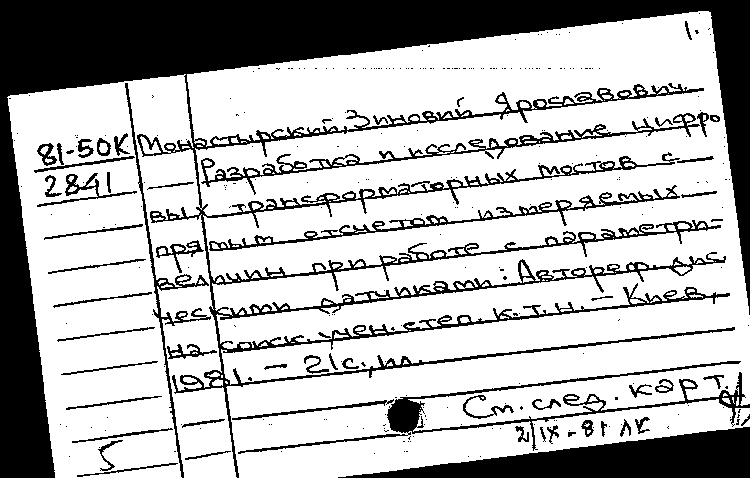 1.
81-50К Монастырский, Зиновий Ярославович.
2841 Разработка и исследование цифро
вых трансформаторных мостов с
прямым отсчетом измеряемых
величин при работе с параметри-
ческими датчиками: Автореф. дис.
на соиск. учен. степ. к.т.н. – Киев,
1981. – 21 с., ил.
См. след. карт.
2/IX-81 ЛК
5